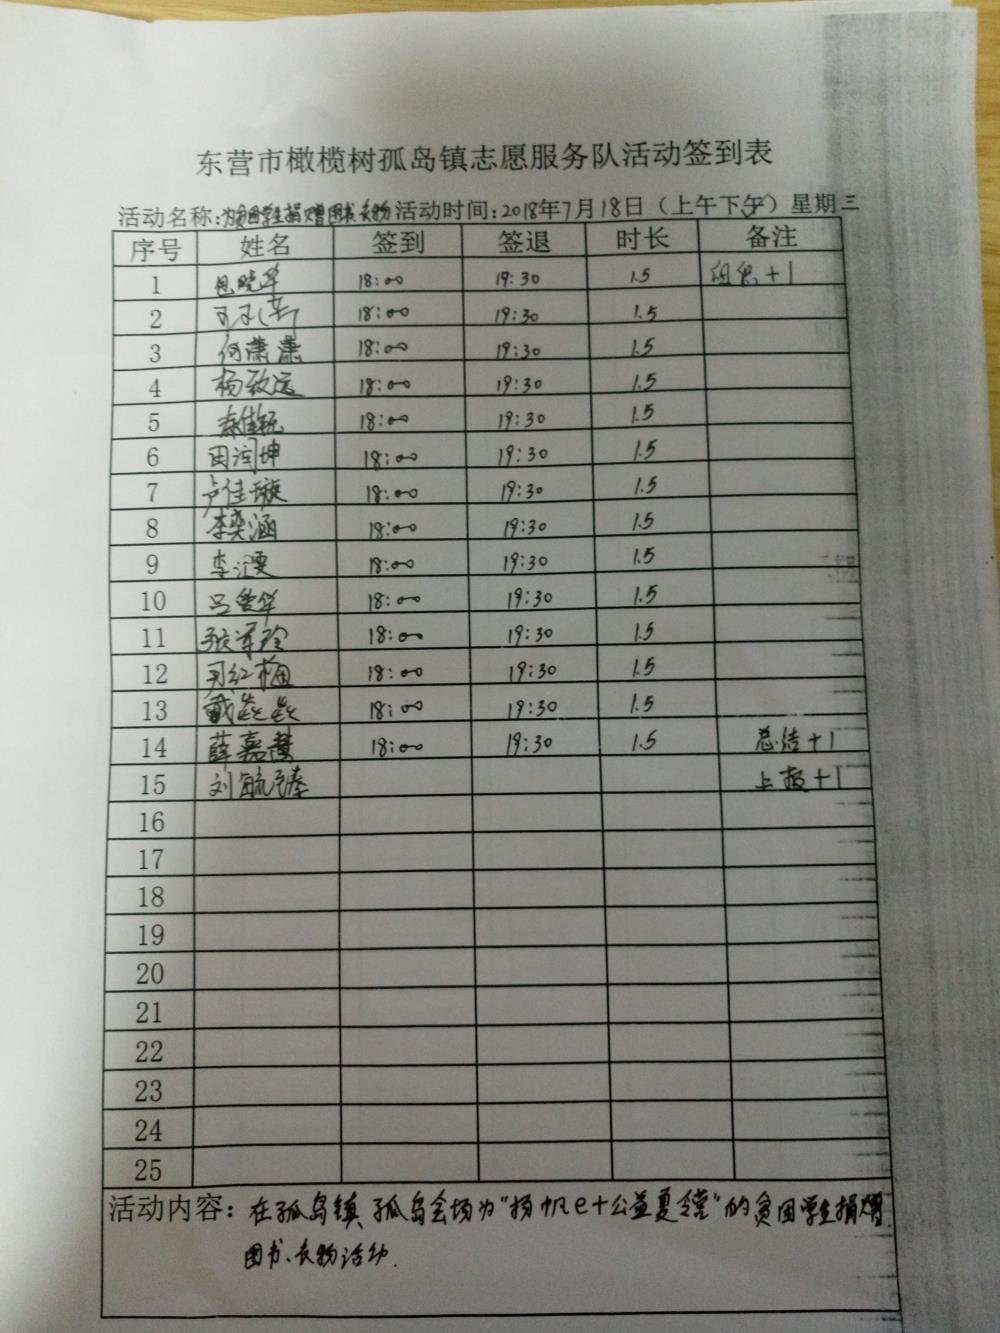 东营市橄榄树孤岛镇志愿服务队活动签到表
活动名称:为贫困学生捐赠图书衣物 活动时间:2018年7月18日（上午下午）星期三
序号 姓名 签到 签退 时长 备注
1 包晓华 18:00 19:30 1.5 组织+1
2 18:00 19:30 1.5
3 何潇潇 18:00 19:30 1.5
4 杨致远 18:00 19:30 1.5
5 18:00 19:30 1.5
6 田润坤 18:00 19:30 1.5
7 卢佳璇 18:00 19:30 1.5
8 李奕涵 18:00 19:30 1.5
9 18:00 19:30 1.5
10 18:00 19:30 1.5
11 18:00 19:30 1.5
12 18:00 19:30 1.5
13 戴焱焱 18:00 19:30 1.5
14 薛嘉慧 18:00 19:30 1.5 总结+1
15 上报+1
16
17
18
19
20
21
22
23
24
25
活动内容：在孤岛镇孤岛会场为“扬帆e+公益夏令营”的贫困学生捐赠
图书、衣物活动.